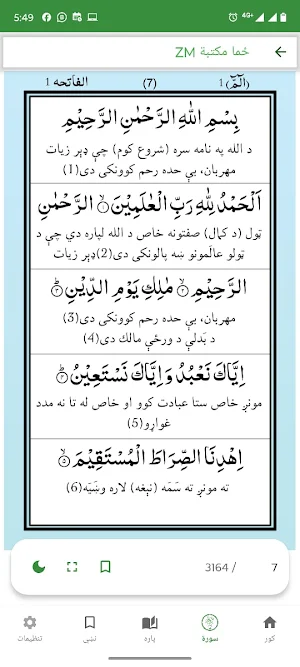 5:49
4G+
ځما مکتبة ZM
الفاتحه 1
(7)
(الٓمّٓ) 1
بِسْمِ اللهِ الرَّحْمٰنِ الرَّحِيْمِ
د الله په نامه سره (شروع کوم) چې ډېر زيات
مهربان، بې حده رحم کوونکی دی(1)
اَلْحَمْدُ لِلّٰهِ رَبِّ الْعٰلَمِيْنَ۝۱ الرَّحْمٰنِ
ټول (د کمال) صفتونه خاص د الله لپاره دي چې د
ټولو عالمونو ښه پالونکی دی(2)ډېر زيات
الرَّحِيْمِ۝۲ مٰلِكِ يَوْمِ الدِّيْنِ۝۳ؕ
مهربان، بې حده رحم کوونکی دی(3)
د بَدلې د ورځې مالك دی(4)
اِيَّاكَ نَعْبُدُ وَ اِيَّاكَ نَسْتَعِيْنُ۝۴ؕ
مونږ خاص ستا عبادت کوو او خاص له تا نه مدد
غواړو(5)
اِهْدِنَا الصِّرَاطَ الْمُسْتَقِيْمَ۝۵ۙ
ته مونږ ته سَمَه (نېغه) لاره وښَيَه(6)
3164 / 7
کور
سورة
پاره
نښی
تنظیمات